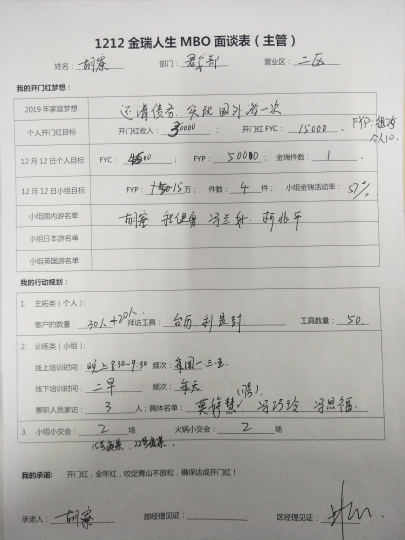 1212金瑞人生MBO面谈表（主管）
姓名： 胡蓉 部门： 营业区： 二区
我的开门红梦想：
2019年家庭梦想 还清债务，实现国外游一次
个人开门红目标 开门红收入： 30000 开门红FYC： 15000
FYP：组25
个人10.
12月12日个人目标 FYC： 4500 FYP： 50000 金瑞件数： 1
12月12日小组目标 FYP： 15万 件数： 4 件； 小组金瑞活动率： 57%
小组国内游名单 胡蓉 冯兰
小组日本游名单
小组英国游名单
我的行动规划：
1. 主拓类（个人）：
客户的数量： 30人+20人 拜访工具： 台历、利是封 工具数量： 50.
2. 训练类（小组）：
线上培训时间： 晚上8:30-9:30 频次： 每周一.三.五
线下培训时间： 二早 频次： 每天
兼职人员家访： 3 人；具体名单： 莫 慧 冯巧玲 冯思福.
3. 小组小交会： 2 场 火锅小交会： 2 场
我的承诺： 开门红，全年红，咬定青山不放松，确保达成开门红！
承诺人： 胡蓉 部经理见证： 区经理见证：